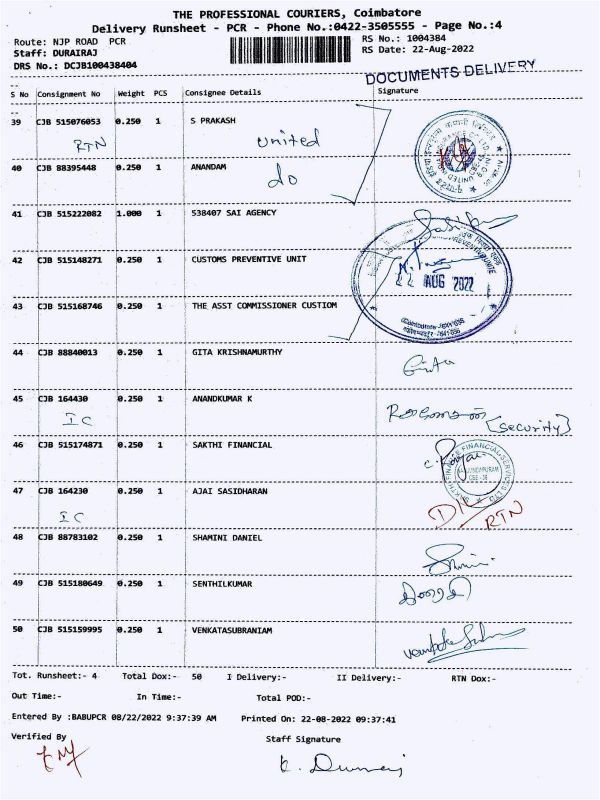 THE PROFESSIONAL COURIERS, Coimbatore
Delivery Runsheet - PCR - Phone No.:0422-3505555 - Page No.:4
Route: NJP ROAD PCR
RS No.: 1004384
Staff: DURAIRAJ
RS Date: 22-Aug-2022
DRS No.: DCJB100438404
DOCUMENTS DELIVERY
S No Consignment No Weight PCS Consignee Details Signature
39 CJB 515076053 0.250 1 S PRAKASH
RTN united
40 CJB 88395448 0.250 1 ANANDAM
do
41 CJB 515222082 1.000 1 538407 SAI AGENCY
42 CJB 515148271 0.250 1 CUSTOMS PREVENTIVE UNIT
22 AUG 2022
43 CJB 515168746 0.250 1 THE ASST COMMISSIONER CUSTIOM
44 CJB 88840013 0.250 1 GITA KRISHNAMURTHY
Gita
45 CJB 164430 0.250 1 ANANDKUMAR K
IC
[security]
46 CJB 515174871 0.250 1 SAKTHI FINANCIAL
47 CJB 164230 0.250 1 AJAI SASIDHARAN
IC
DL/RTN
48 CJB 88783102 0.250 1 SHAMINI DANIEL
49 CJB 515180649 0.250 1 SENTHILKUMAR
50 CJB 515159995 0.250 1 VENKATASUBRANIAM
Tot. Runsheet:- 4 Total Dox:- 50 I Delivery:- II Delivery:- RTN Dox:-
Out Time:- In Time:- Total POD:-
Entered By :BABUPCR 08/22/2022 9:37:39 AM Printed On: 22-08-2022 09:37:41
Verified By
Staff Signature